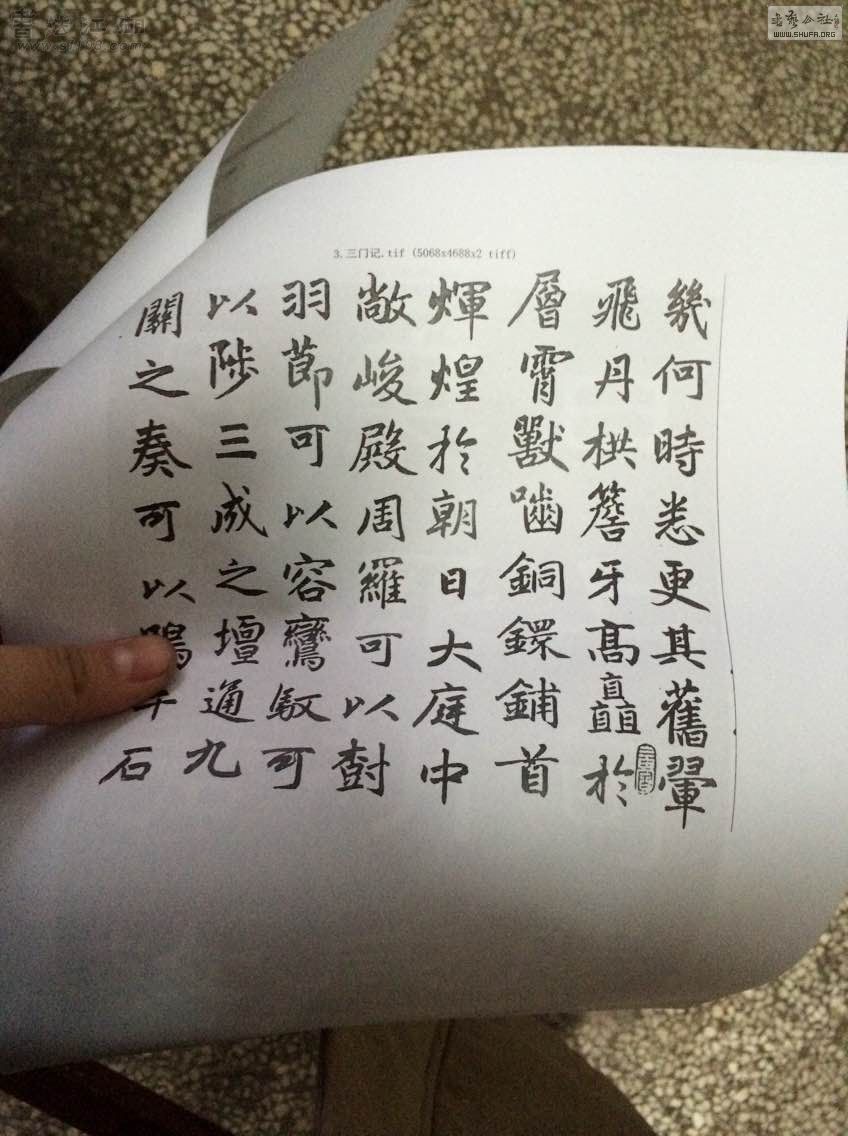 書法江湖
www.sf108.com
书艺公社
WWW.SHUFA.ORG
3.三门记.tif (5068x4688x2 tiff)
幾何時悉更其舊翬
飛丹栱簷牙高矗於
層霄獸噛銅鐶鋪首
煇煌於朝日大庭中
敞峻殿周羅可以樹
羽節可以容鸞馭可
以陟三成之壇通九
關之奏可以鳴石